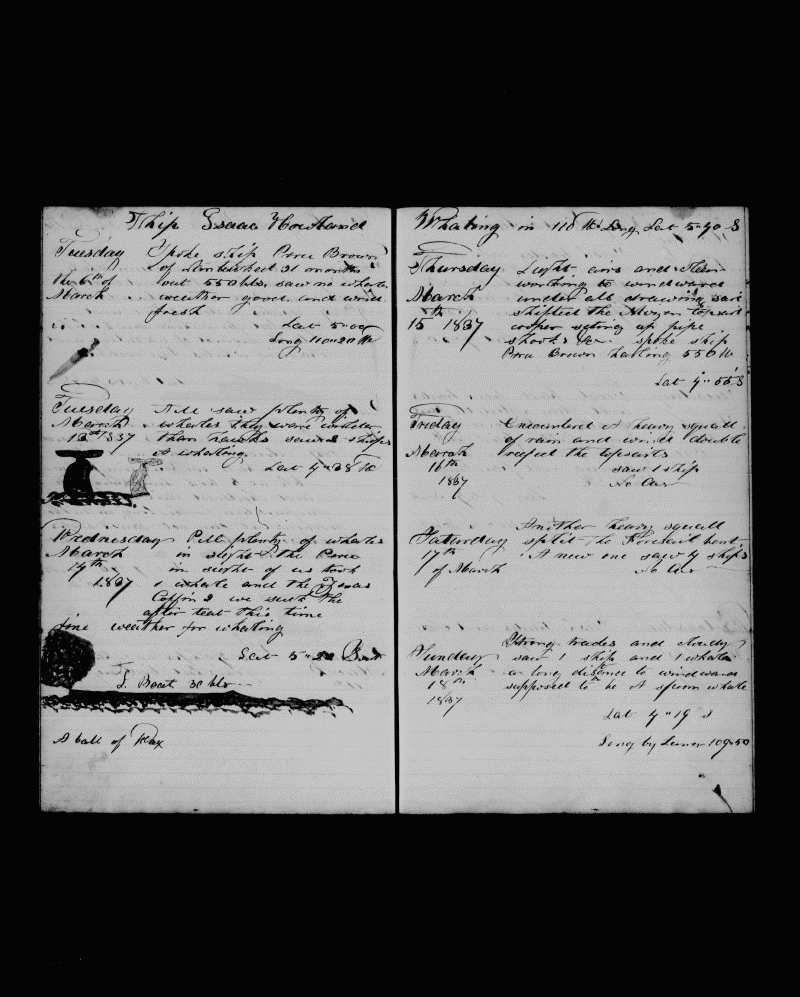 Ship Isaac Howland
Tuesday
the 6th of
March
Spoke ship Peru Brown
of Nantucket 21 months
out 550 bbls, saw no whales
weather good and wind
fresh
Lat 5"
Long 110"20 W
Tuesday
March
13th 1837
AM saw plenty of
whales they were wilder
than hawks saw 2 ships
a whaling
Lat 4"38
Wednesday
March
14th
1837
Still plenty of whales
in sight & the Peru
in sight of us took
1 whale and the
Coffin 2 we sunk the
after teat this time
fine weather for whaling
Lat 5"
S. Boat 30 bbls
A ball of Wax
Whaling in 110 W Long Lat 5"40 S
Thursday
March
15th 1837
Light airs and
working to windward
under all drawing sail
shifted the Mizen topsail
cooper seting up pipe
shooks &c. spoke ship
Peru Brown halling 550 bb
Lat 4"55 S
Friday
March
16th
1837
Encountered A heavy squall
of rain and wind double
reefed the topsails
saw 1 ship
No Obs
Saturday
17th
of March
Another heavy squall
split the Foresail bent
A new one saw 4 ships
No Obs
Sunday
March
18th
1837
Strong trades and cloudy
saw 1 ship and 1 whale
a long distance to windward
supposed to be A sperm whale
Lat 4"19 S
Long by Luner 109"50